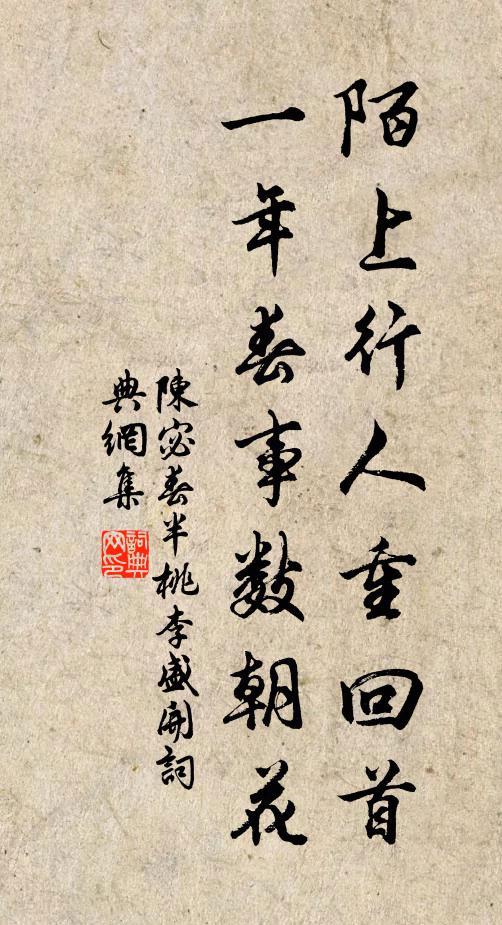 陌上行人重回首
一年春事數朝花
陳宓春半桃李盛開詞
典網集
詞典
网印